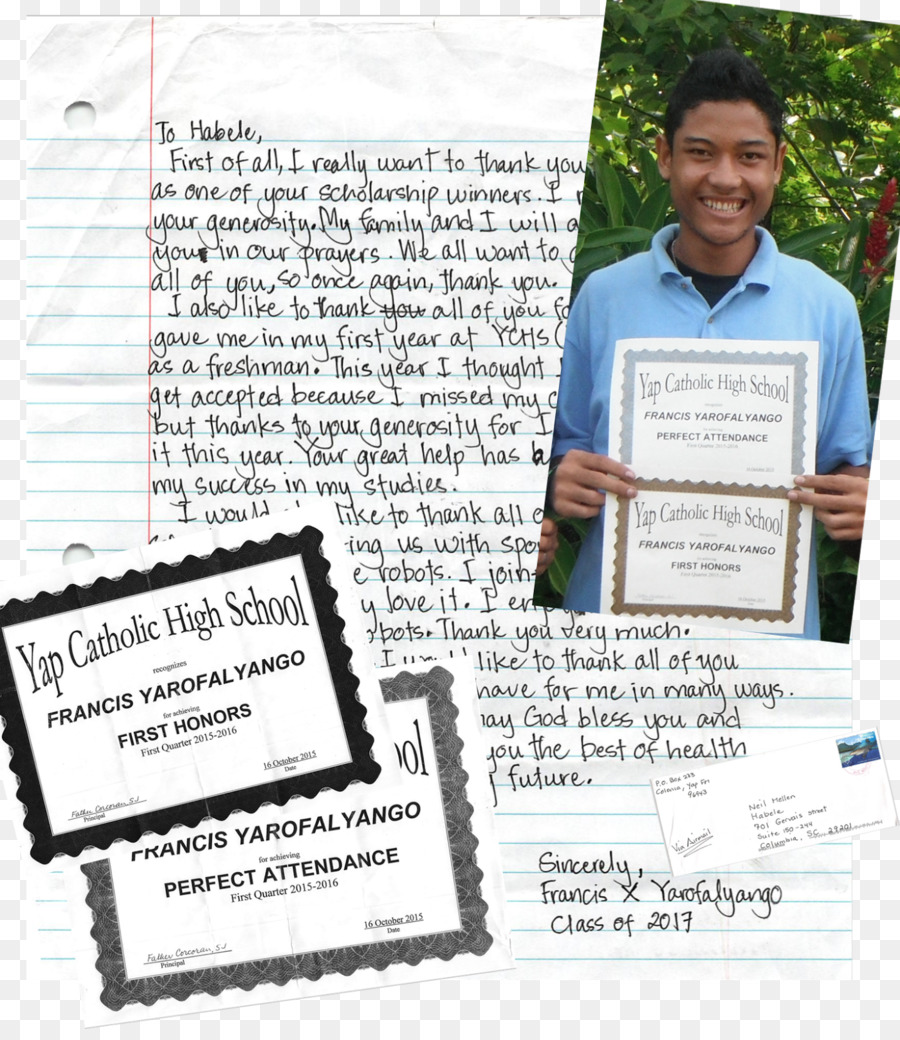 To Habele,
First of all, I really want to thank you
as one of your scholarship winners. I
your generosity. My family and I will
your in our prayers. We all want to
all of you, so once again, thank you.
I also like to thank you all of you
gave me in my first year at YCHS
as a freshman. This year I thought
get accepted because I missed my
but thanks to your generosity for I
it this year. Your great help has
my success in my studies.
I would like to thank all
ing us with spo
e robots. I join-
love it. I
bots. Thank you very much.
I would like to thank all of you
have for me in many ways.
may God bless you and
you the best of health
future.
Sincerely,
Francis X Yarofalyango
Class of 2017
Yap Catholic High School
recognizes
FRANCIS YAROFALYANGO
for achieving
PERFECT ATTENDANCE
First Quarter 2015-2016
16 October 2015
Yap Catholic High School
recognizes
FRANCIS YAROFALYANGO
for achieving
FIRST HONORS
First Quarter 2015-2016
16 October 2015
Yap Catholic High School
recognizes
FRANCIS YAROFALYANGO
for achieving
FIRST HONORS
First Quarter 2015-2016
16 October 2015
Date
Father Corcoran, SJ
Principal
ool
FRANCIS YAROFALYANGO
for achieving
PERFECT ATTENDANCE
First Quarter 2015-2016
16 October 2015
Date
Father Corcoran, SJ
Principal
P.O. Box 223
Colonia, Yap Fm
96943
Neil Mellen
Habele
701 Gervais Street
Suite 150-244
Columbia, SC 29201
Via Airmail